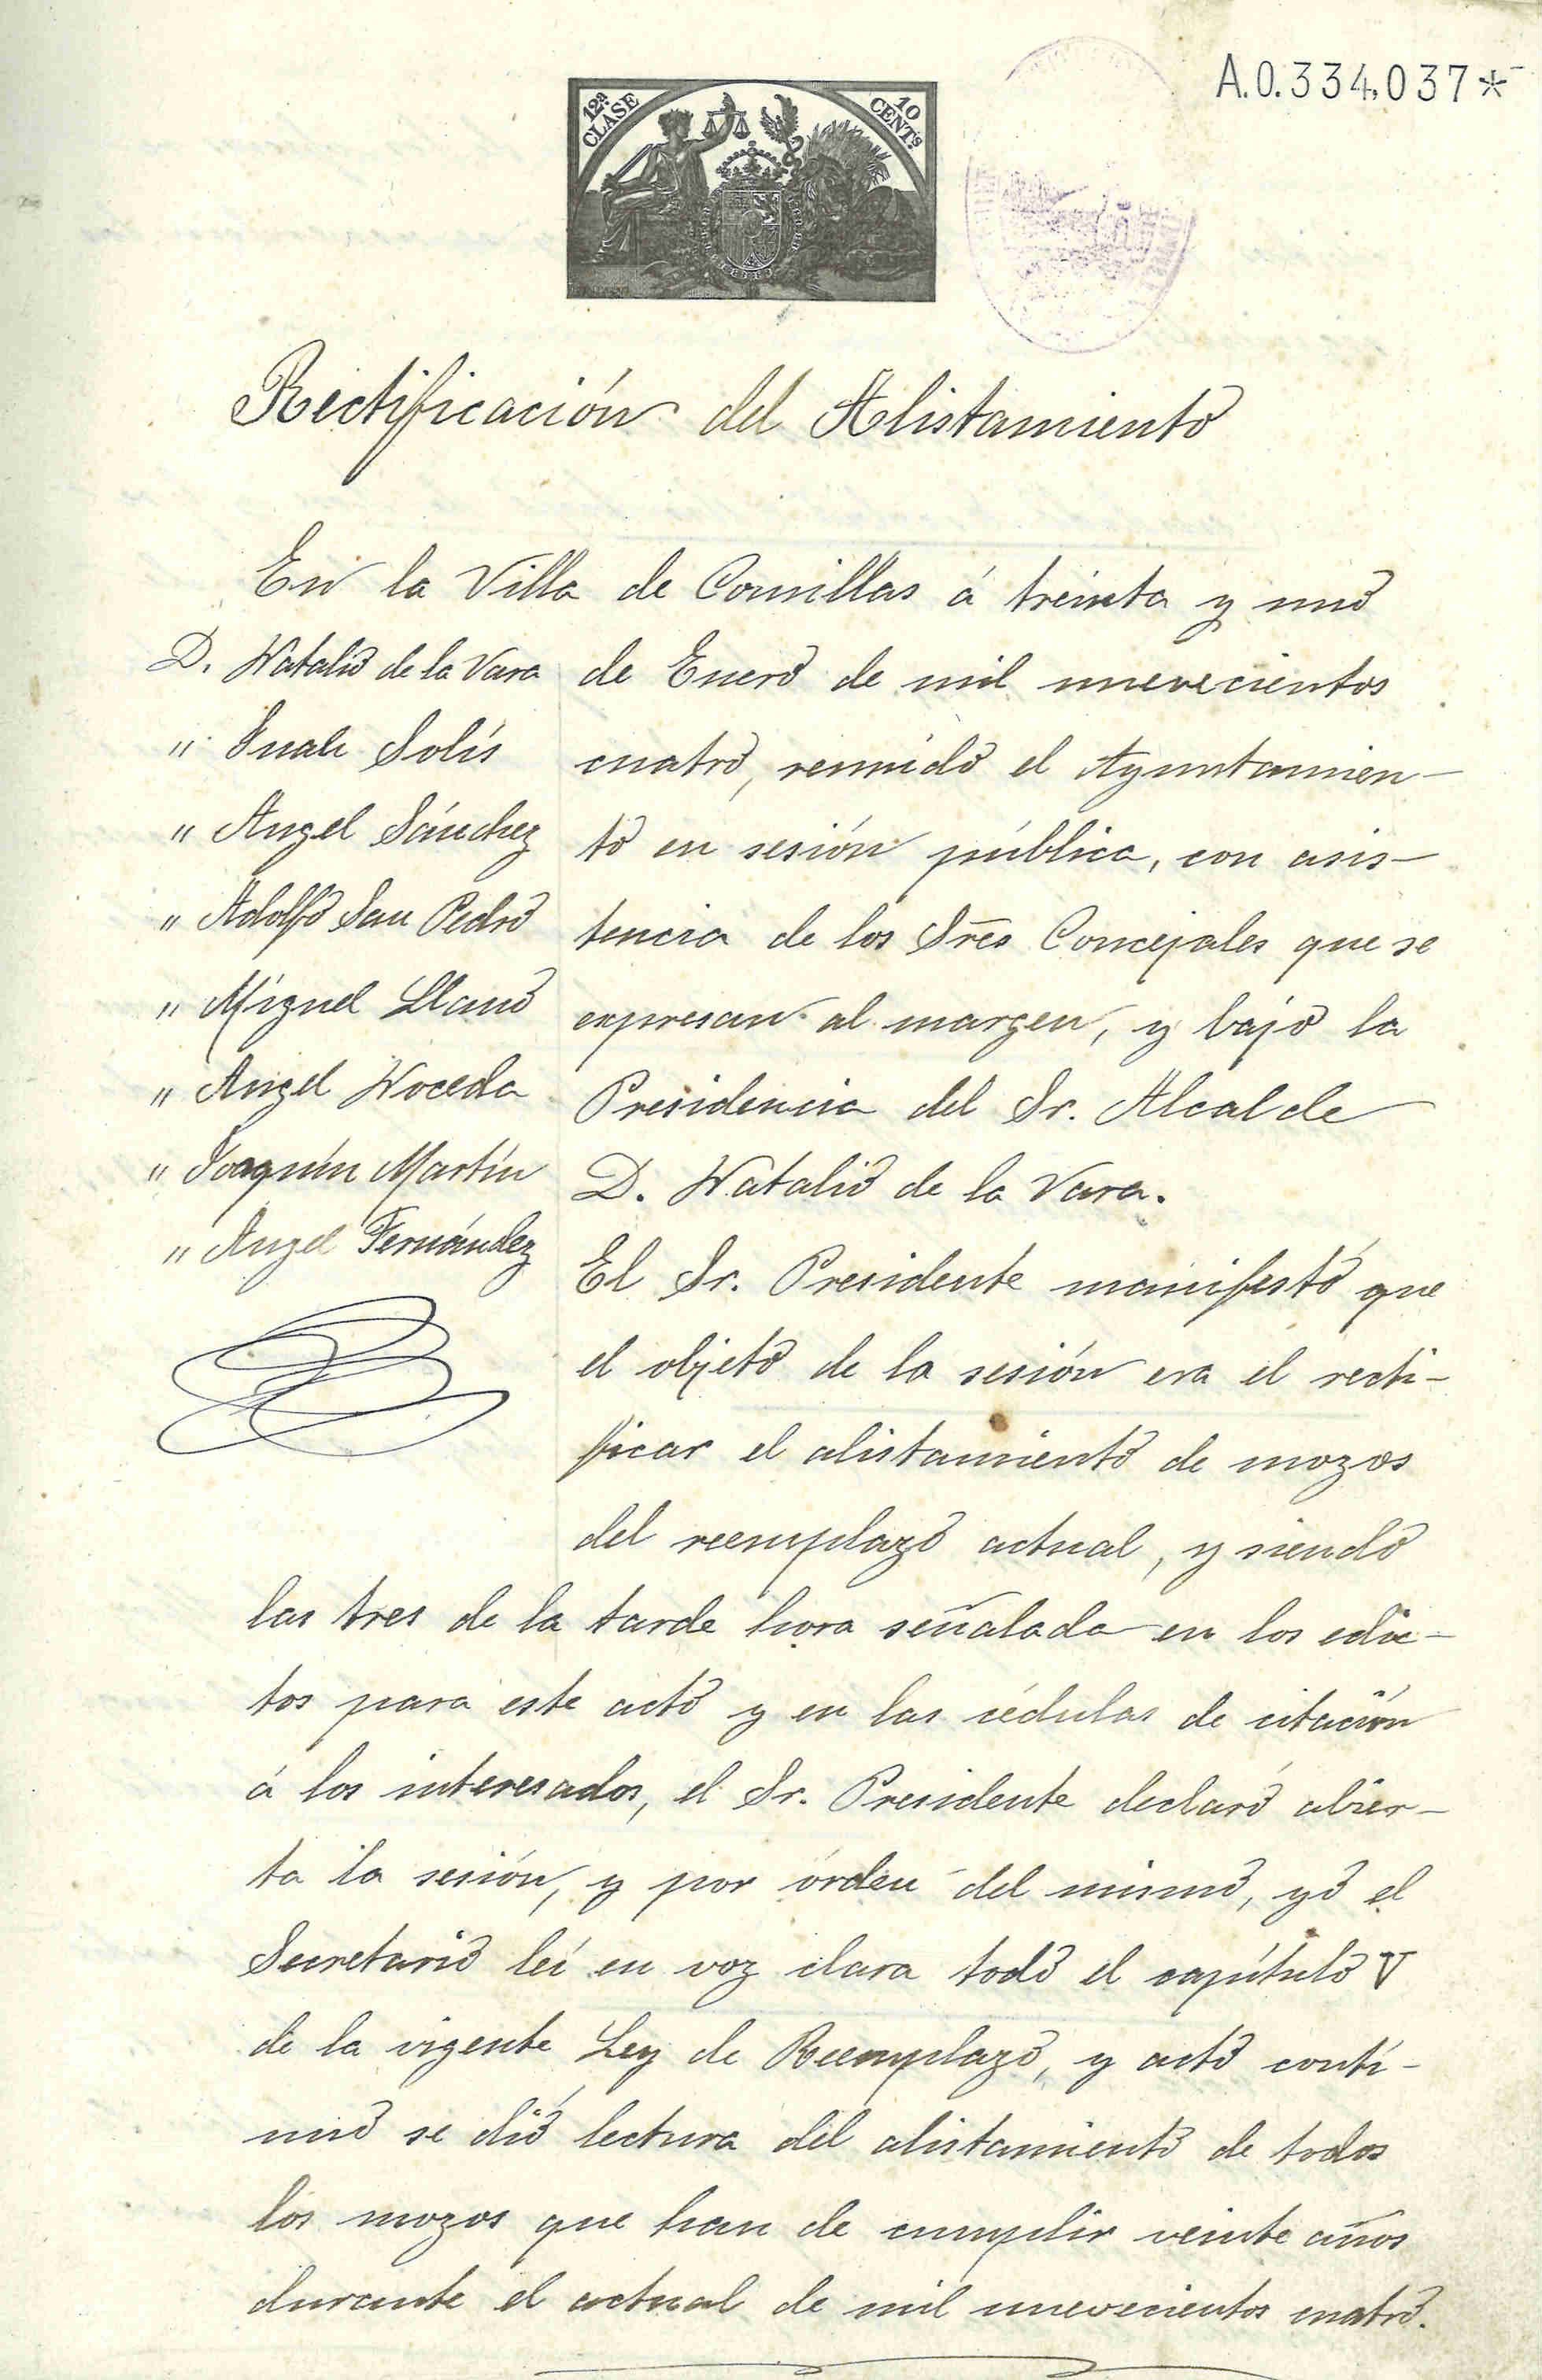 A.0.334,037*
12ª CLASE
10 CENTS
Rectificación del Alistamiento
En la Villa de Comillas á treinta y uno
D. Natalio de la Vara
" Juan Solís
" Angel Sánchez
" Adolfo San Pedro
" Miguel Llano
" Angel Noceda
" Joaquín Martín
" Angel Fernández
de Enero de mil nuevecientos
cuatro, reunido el Ayuntamien-
to en sesión pública, con asis-
tencia de los Sres Concejales que se
expresan al margen, y bajo la
Presidencia del Sr. Alcalde
D. Natalio de la Vara.
El Sr. Presidente manifestó que
el objeto de la sesión era el recti-
ficar el alistamiento de mozos
del reemplazo actual, y siendo
las tres de la tarde hora señalada en los edic-
tos para este acto y en las cédulas de citación
á los interesados, el Sr. Presidente declaró abier-
ta la sesión, y por órden del mismo, yo el
Secretario leí en voz clara todo el capítulo V
de la vigente Ley de Reemplazo, y acto conti-
nuo se dió lectura del alistamiento de todos
los mozos que han de cumplir veinte años
durante el actual de mil nuevecientos cuatro.